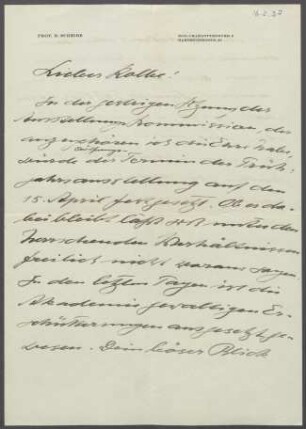 16.2.33
PROF. E. SCHEIBE
Lieber Kolbe!
In der gestrigen Sitzung der
Ausstellungskommission, der
anzugehören ich die Ehre habe,
wurde der Termin der Früh-
jahrsausstellung auf den
15. April festgesetzt. Ob es da-
bei bleibt läßt sich unter den
herrschenden Verhältnissen
freilich nicht voraussagen
In den letzten Tagen ist die
Akademie gewaltigen Er-
schütterungen ausgesetzt ge-
wesen. Dein böser Blick